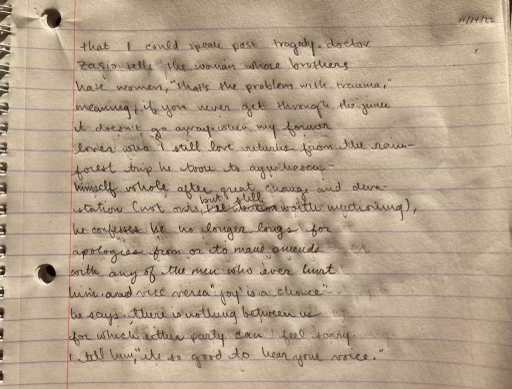 11/14/22
that I could speak past tragedy. doctor
zasio tells the woman whose brothers
hate women, "that's the problem with trauma,"
meaning, if you never get through the juice
it doesn't go away. when my former
lover who I still love returns from the rain-
forest trip he took to
himself whole, after great change and deva-
station (not ours, but still worth mentioning),
he confesses he no longer longs for
apologies from or to make amends
with any of the men who ever hurt
him. and vice versa "joy is a choice"
he says. there is nothing between us
for which either party can feel sorry.
I tell him, "it's so good to hear your voice."